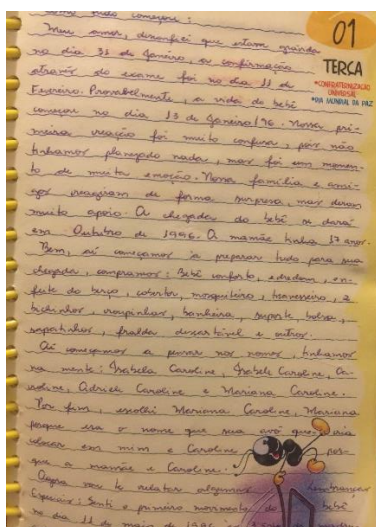 tudo começou:
Meu amor, desconfiei que estava grávida
no dia 31 de Janeiro, a confirmação
através do exame foi no dia 11 de
Fevereiro. Provavelmente, a vida do bebê
começou no dia 13 de Janeiro/96. Nossa pri-
meira reação foi muito confusa, pois não
tínhamos planejado nada, mas foi um momen-
to de muita emoção. Nossa família e ami-
gos reagiram de forma surpresa, mas deram
muito apoio. A chegada do bebê se dará
em Outubro de 1996. A mamãe tinha 17 anos.
Bem, aí começamos a preparar tudo para sua
chegada, compramos: Bebê conforto, edredom, en-
feite do berço, cobertor, mosquiteiro, travesseiro, 2
bichinhos, roupinhas, banheira, suporte, bolsa,
sapatinhos, fralda descartável e outros.
Aí começamos a pensar nos nomes, tínhamos
na mente: Isabela Caroline, Gabriele Caroline, Ca-
roline, Adriele Caroline e Mariana Caroline.
Por fim, escolhi Mariana Caroline, Mariana
porque era o nome que sua avó queria
colocar em mim e Caroline por-
que a mamãe é Caroline.
Agora vou te relatar algumas lembranças
Especiais: Senti o primeiro movimento do bebê
no dia 11 de maio de 1996
01
TERÇA
•CONFRATERNIZAÇÃO
UNIVERSAL
•DIA MUNDIAL DA PAZ